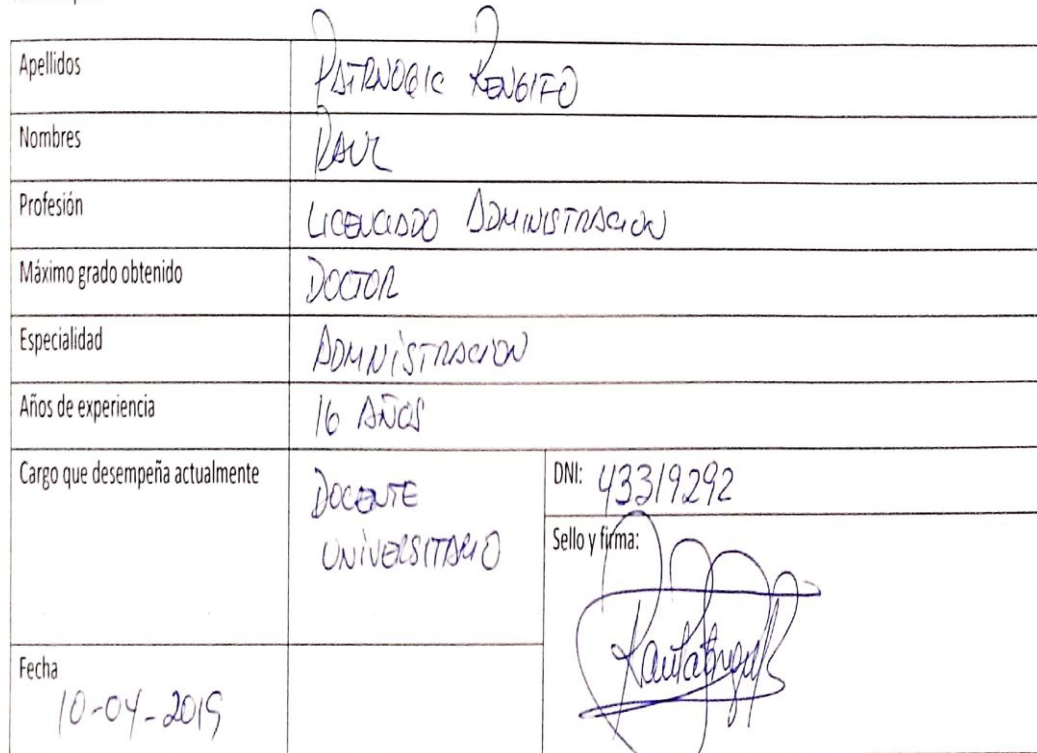 Apellidos
PATRNOGIC RENGIFO
Nombres
RAUL
Profesión
LICENCIADO ADMINISTRACION
Máximo grado obtenido
DOCTOR
Especialidad
ADMINISTRACION
Años de experiencia
16 AÑOS
Cargo que desempeña actualmente
DOCENTE
UNIVERSITARIO
DNI: 43319292
Sello y firma:
Fecha
10-04-2019